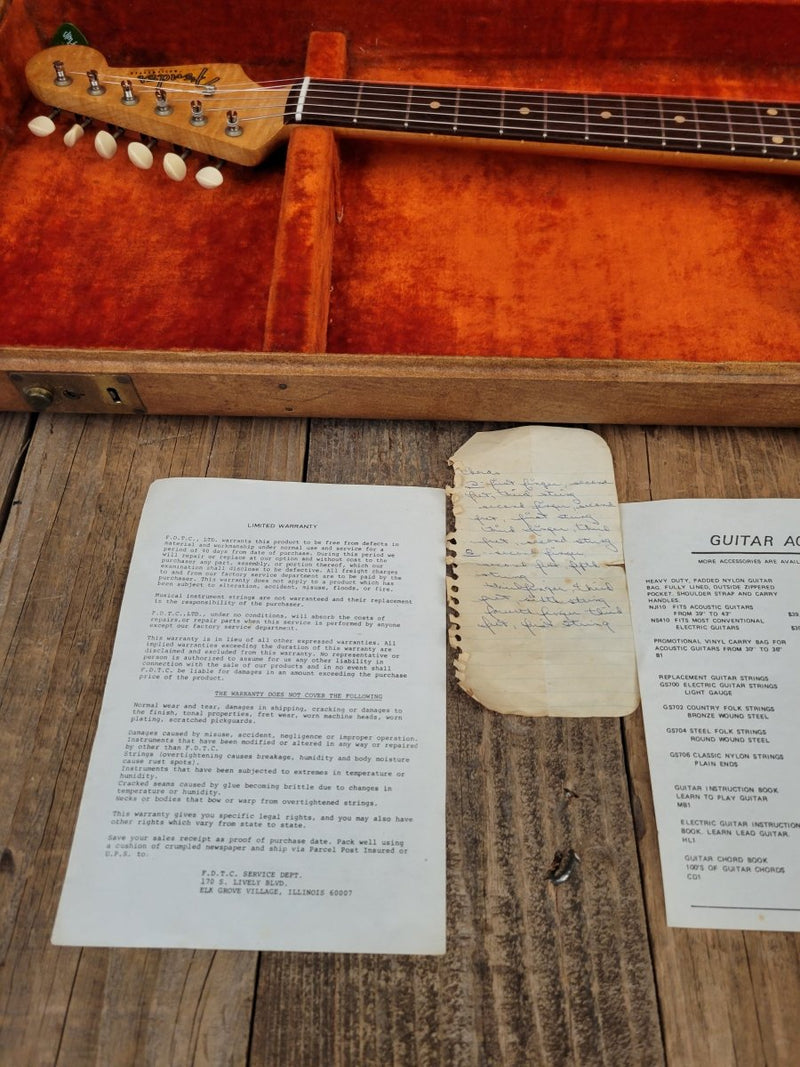 Fender
LIMITED WARRANTY
F.D.T.C., LTD. warrants this product to be free from defects in
material and workmanship under normal use and service for a
period of 90 days from date of purchase. During this period we
will repair or replace at our option and without cost to the
purchaser any part, assembly, or portion thereof, which our
examination shall disclose to be defective. All freight charges
to and from our factory service department are to be paid by the
purchaser. This warranty does not apply to a product which has
been subject to alteration, accident, misuse, floods, or fire.
Musical instrument strings are not warranted and their replacement
is the responsibility of the purchaser.
F.D.T.C., LTD., under no conditions, will absorb the costs of
repairs,or repair parts when this service is performed by anyone
except our factory service department.
This warranty is in lieu of all other expressed warranties. All
implied warranties exceeding the duration of this warranty are
disclaimed and excluded from this warranty. No representative or
person is authorized to assume for us any other liability in
connection with the sale of our products and in no event shall
F.D.T.C. be liable for damages in an amount exceeding the purchase
price of the product.
THE WARRANTY DOES NOT COVER THE FOLLOWING
Normal wear and tear, damages in shipping, cracking or damages to
the finish, tonal properties, fret wear, worn machine heads, worn
plating, scratched pickguards.
Damages caused by misuse, accident, negligence or improper operation.
Instruments that have been modified or altered in any way or repaired
by other than F.D.T.C.
Strings (overtightening causes breakage, humidity and body moisture
cause rust spots).
Instruments that have been subjected to extremes in temperature or
humidity.
Cracked seams caused by glue becoming brittle due to changes in
temperature or humidity.
Necks or bodies that bow or warp from overtightened strings.
This warranty gives you specific legal rights, and you may also have
other rights which vary from state to state.
Save your sales receipt as proof of purchase date. Pack well using
a cushion of crumpled newspaper and ship via Parcel Post Insured or
U.P.S. to:
F.D.T.C. SERVICE DEPT.
170 S. LIVELY BLVD.
ELK GROVE VILLAGE, ILLINOIS 60007
Chords
first finger, second
fret, third string
second finger, second
fret, first string
third finger, third
fret, second string
second finger
second fret fifth
string
third finger, third
fret, sixth string
fourth finger third
fret, first string
GUITAR AC
MORE ACCESSORIES ARE AVAIL
HEAVY DUTY, PADDED NYLON GUITAR
BAG. FULLY LINED, OUTSIDE ZIPPERED
POCKET, SHOULDER STRAP AND CARRY
HANDLES.
NJ310 FITS ACOUSTIC GUITARS
FROM 39" TO 43"
NS410 FITS MOST CONVENTIONAL
ELECTRIC GUITARS
PROMOTIONAL VINYL CARRY BAG FOR
ACOUSTIC GUITARS FROM 30" TO 36"
REPLACEMENT GUITAR STRINGS
GS700 ELECTRIC GUITAR STRINGS
LIGHT GAUGE
GS702 COUNTRY FOLK STRINGS
BRONZE WOUND STEEL
GS704 STEEL FOLK STRINGS
ROUND WOUND STEEL
GS706 CLASSIC NYLON STRINGS
PLAIN ENDS
GUITAR INSTRUCTION BOOK
LEARN TO PLAY GUITAR
MB1
ELECTRIC GUITAR INSTRUCTION
BOOK. LEARN LEAD GUITAR.
HL1
GUITAR CHORD BOOK
100'S OF GUITAR CHORDS
CD1